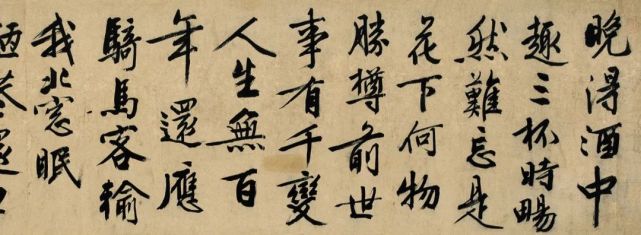 晚淂酒中
趣三杯時暢
然難忘是
花下何物
勝樽前世
事有千變
人生無百
年還應
騎馬客輸
我北窓眠